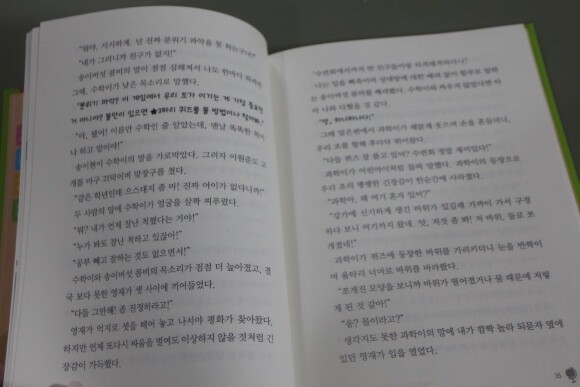 "뭐야, 시시하게. 넌 진짜 분위기 파악을 못 하는구나!"
"네가 그러니까 친구가 없지!"
송이버섯 콤비의 말이 점점 심해져서 나도 한마디 하려던
그때, 수학이가 낮은 목소리로 말했다.
"분위기 파악? 이 게임에서 우리 조가 이기는 게 가장 중요한
거 아니야? 불만이 있으면 ★3짜리 퀴즈를 풀 방법이나 찾아봐."
"아, 됐어! 이름만 수학인 줄 알았는데, 맨날 똑똑한 척이
나 하고 말이야!"
송이현이 수학이의 말을 가로막았다. 그러자 이원준도 고
개를 마구 끄덕이며 맞장구를 쳤다.
"같은 학년인데 으스대지 좀 마! 진짜 어이가 없다니까!"
두 사람의 말에 수학이가 얼굴을 살짝 찌푸렸다.
"뭐? 내가 언제 잘난 척했다는 거야!"
"누가 봐도 잘난 척하고 있잖아!"
"공부 빼고 잘하는 것도 없으면서!"
수학이와 송이버섯 콤비의 목소리가 점점 더 높아졌고, 결
국 보다 못한 영재가 셋 사이에 끼어들었다.
"다들 그만해! 좀 진정하라고!"
영재가 억지로 셋을 떼어 놓고 나서야 평화가 찾아왔다.
하지만 언제 또다시 싸움을 벌여도 이상하지 않을 것처럼 긴
장감이 가득했다.
"수련회에서까지 꼭 친구들이랑
나는 일을
는 송이버섯 콤비를
까 나와 다퉜을 것 같다.
그때 덤은편에서 과학이가 해맑게 웃으며 손을 흔들더니,
우리 조를 향해 후다닥 뛰어왔다.
"다들 퀴즈 잘 풀고 있어? 수련회 정말 재미있다!"
과학이가 어린아이처럼 들떠 말했다. 과학이의 등장으로
우리 조의 팽팽한 긴장감이 한순간에 사라졌다.
"과학아, 왜 여기 혼자 있어?"
"강가에 신기하게 생긴 바위가 있길래 가까이 가서 구경
하다 보니 여기까지 왔네. 앗, 저것 좀 봐! 저 바위, 둘로 쪼
개졌네!"
과학이가 퀴즈에 등장한 바위를 가리키더니 눈을 반짝이
며 울타리 너머로 바위를 바라봤다.
"쪼개진 모양을 보니까 바위가 떨어졌거나 물 때문에 저렇
게 된 것 같아!"
"응? 물이라고?"
생각지도 못한 과학이의 말에 내가 깜짝 놀라 되묻자 옆에
있던 영재가 입을 열었다.
35